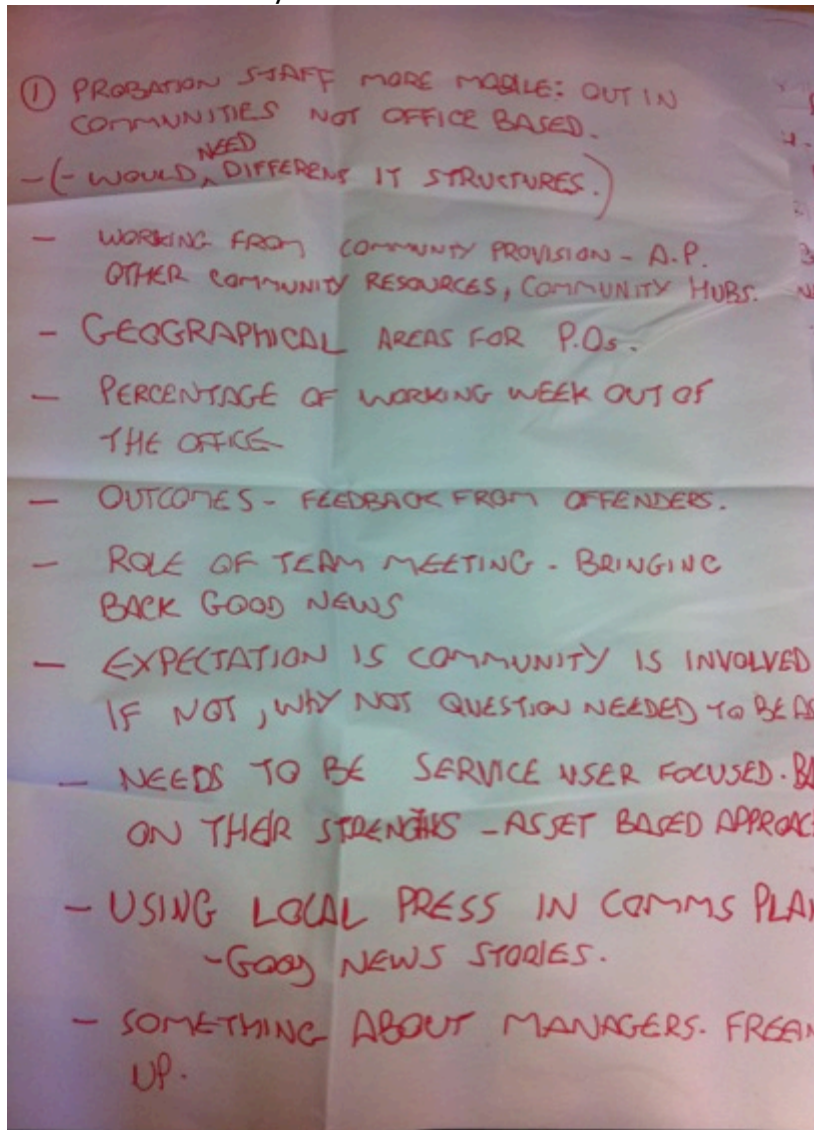 ① PROBATION STAFF MORE MOBILE: OUT IN
COMMUNITIES NOT OFFICE BASED.
NEED
-(- WOULD ‸ DIFFERENT IT STRUCTURES.)
- WORKING FROM COMMUNITY PROVISION - A.P.
OTHER COMMUNITY RESOURCES, COMMUNITY HUBS.
- GEOGRAPHICAL AREAS FOR P.Os.
- PERCENTAGE OF WORKING WEEK OUT OF
THE OFFICE
- OUTCOMES - FEEDBACK FROM OFFENDERS.
- ROLE OF TEAM MEETING - BRINGING
BACK GOOD NEWS
- EXPECTATION IS COMMUNITY IS INVOLVED
IF NOT, WHY NOT QUESTION NEEDED TO BE AS
- NEEDS TO BE SERVICE USER FOCUSED. BA
ON THEIR STRENGTHS - ASSET BASED APPROAC
- USING LOCAL PRESS IN COMMS PLAN
- GOOD NEWS STORIES.
- SOMETHING ABOUT MANAGERS. FREEIN
UP.